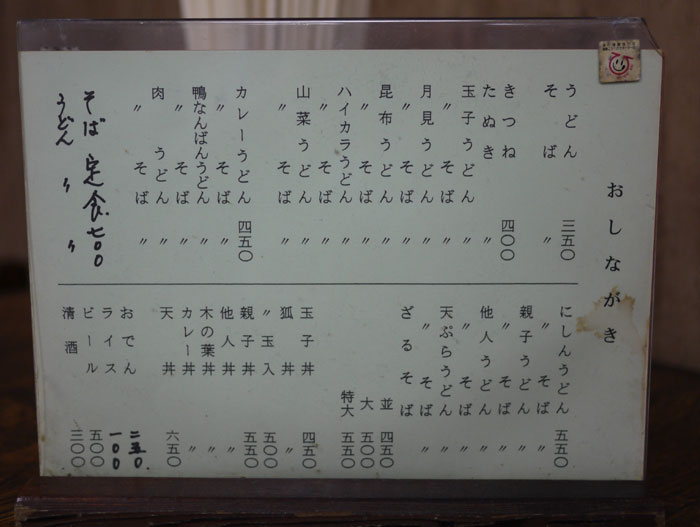 おしながき
うどん 三五〇
そば 〃
きつね 四〇〇
たぬき 〃
玉子うどん 〃
〃 そば 〃
月見うどん 〃
〃 そば 〃
昆布うどん 〃
〃 そば 〃
ハイカラうどん 〃
〃 そば 〃
山菜うどん 〃
〃 そば 〃
カレーうどん 四五〇
〃 そば 〃
鴨なんばんうどん 〃
〃 そば 〃
肉うどん 〃
〃 そば 〃
そば 定食 七〇〇
うどん 〃 〃
にしんうどん 五五〇
〃 そば 〃
親子うどん 〃
〃 そば 〃
他人うどん 〃
〃 そば 〃
天ぷらうどん 〃
〃 そば 〃
ざるそば 並 四五〇
大 五〇〇
特大 五五〇
玉子丼 四五〇
狐丼 〃
〃玉入 五〇〇
親子丼 五五〇
他人丼 〃
木の葉丼 〃
カレー丼 〃
天丼 六五〇
おでん 二五〇
ライス 一〇〇
ビール 五〇〇
清酒 三〇〇